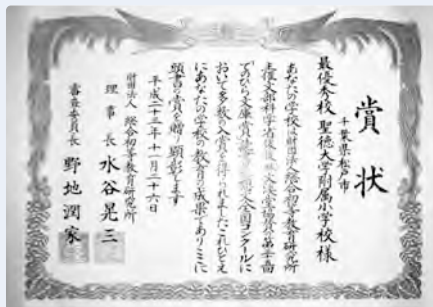 賞状
千葉県松戸市
最優秀校 聖徳大学附属小学校様
あなたの学校は財団法人総合初等教育研究所
主催文部科学省後援
「てのひら文庫賞」読書感想文全国コンクールに
おいて多数の入賞を得られましたこれひとえ
にあなたの学校の教育の成果でありここに
賞を贈り顕彰します
平成二十三年十一月二十六日
財団法人 総合初等教育研究所
理事長 水谷晃三
審査委員長 野地潤家